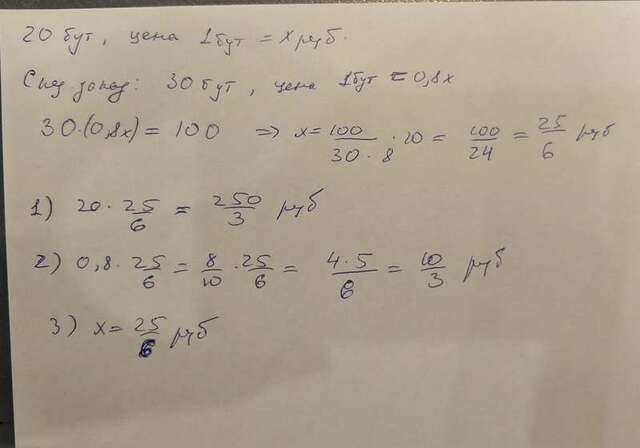 20 бут, цена 1 бут = x руб.
След доход: 30 бут, цена 1 бут = 0,8x
30·(0,8x) = 100 => x = 100/30·8 · 10 = 100/24 = 25/6 руб
1) 20 · 25/6 = 250/3 руб
2) 0,8 · 25/6 = 8/10 · 25/6 = 4·5/6 = 10/3 руб
3) x = 25/6 руб